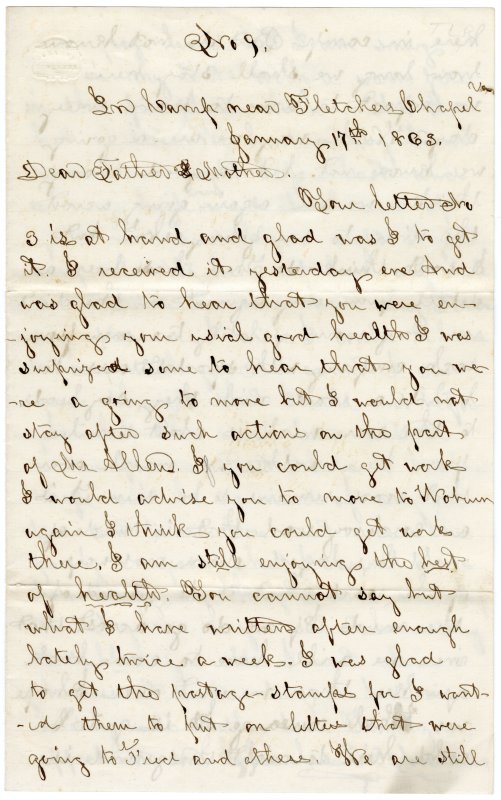 No 9.
In Camp near Fletchers Chapel Va
January 17th 1863.
Dear Father & Mother.
Your letter No
3 is at hand and glad was I to get
it I received it yesterday eve And
was glad to hear that you were en-
-joying your usial good health I was
surprized some to hear that you we-
-re a going to move but I would not
stay after such actions on the part
of Mr Allen. If you could get work
I would advise you to move to Woburn
again I think you could get work
there, I am still enjoying the best
of health. You cannot say but
what I have written often enough
lately twice a week. I was glad
to get the postage stamps for I want-
-ed them to put on letters that were
going to Fred and others. We are still